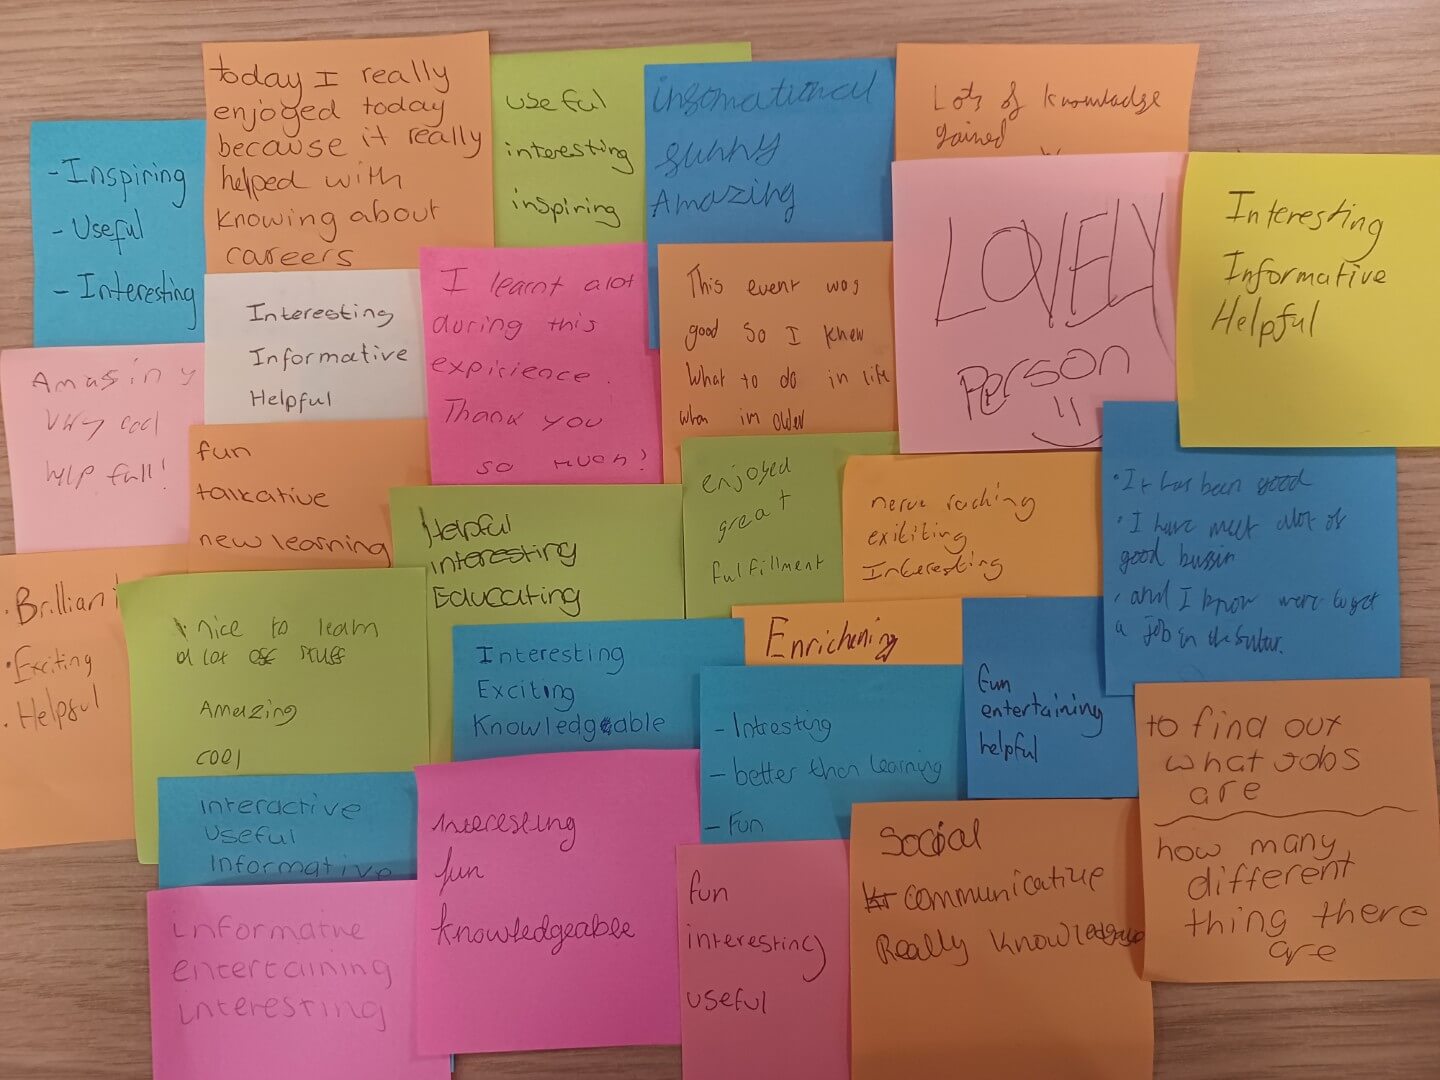 - Inspiring
- Useful
- Interesting
today I really
enjoyed today
because it really
helped with
knowing about
careers
useful
interesting
inspiring
insomational
sunny
Amazing
Lots of knowladge
gained
LOVELY
PERSON
Interesting
Informative
Helpful
Amasing
very cool
help full!
Interesting
Informative
Helpful
I learnt alot
during this
expirience.
Thank you
so much!
This event was
good so I knew
What to do in life
when im older
fun
talkative
new learning
Helpful
interesting
Educating
enjoyed
great
fulfillment
nerve racking
exititing
Interesting
• It has been good
• I have meet alot of
good bussin
• and I know were to get
a job in the
• Brilliant
• Exciting
• Helpful
nice to learn
a lot of stuff
Amazing
cool
Interesting
Exciting
Knowledgeable
Enrichening
- Intresting
- better than learning
- Fun
fun
entertaining
helpful
to find out
what Jobs
are
how many
different
thing there
are
interactive
useful
informative
interesting
fun
knowledgeable
informative
entertaining
interesting
fun
interesting
useful
Social
communicative
Really knowledgable